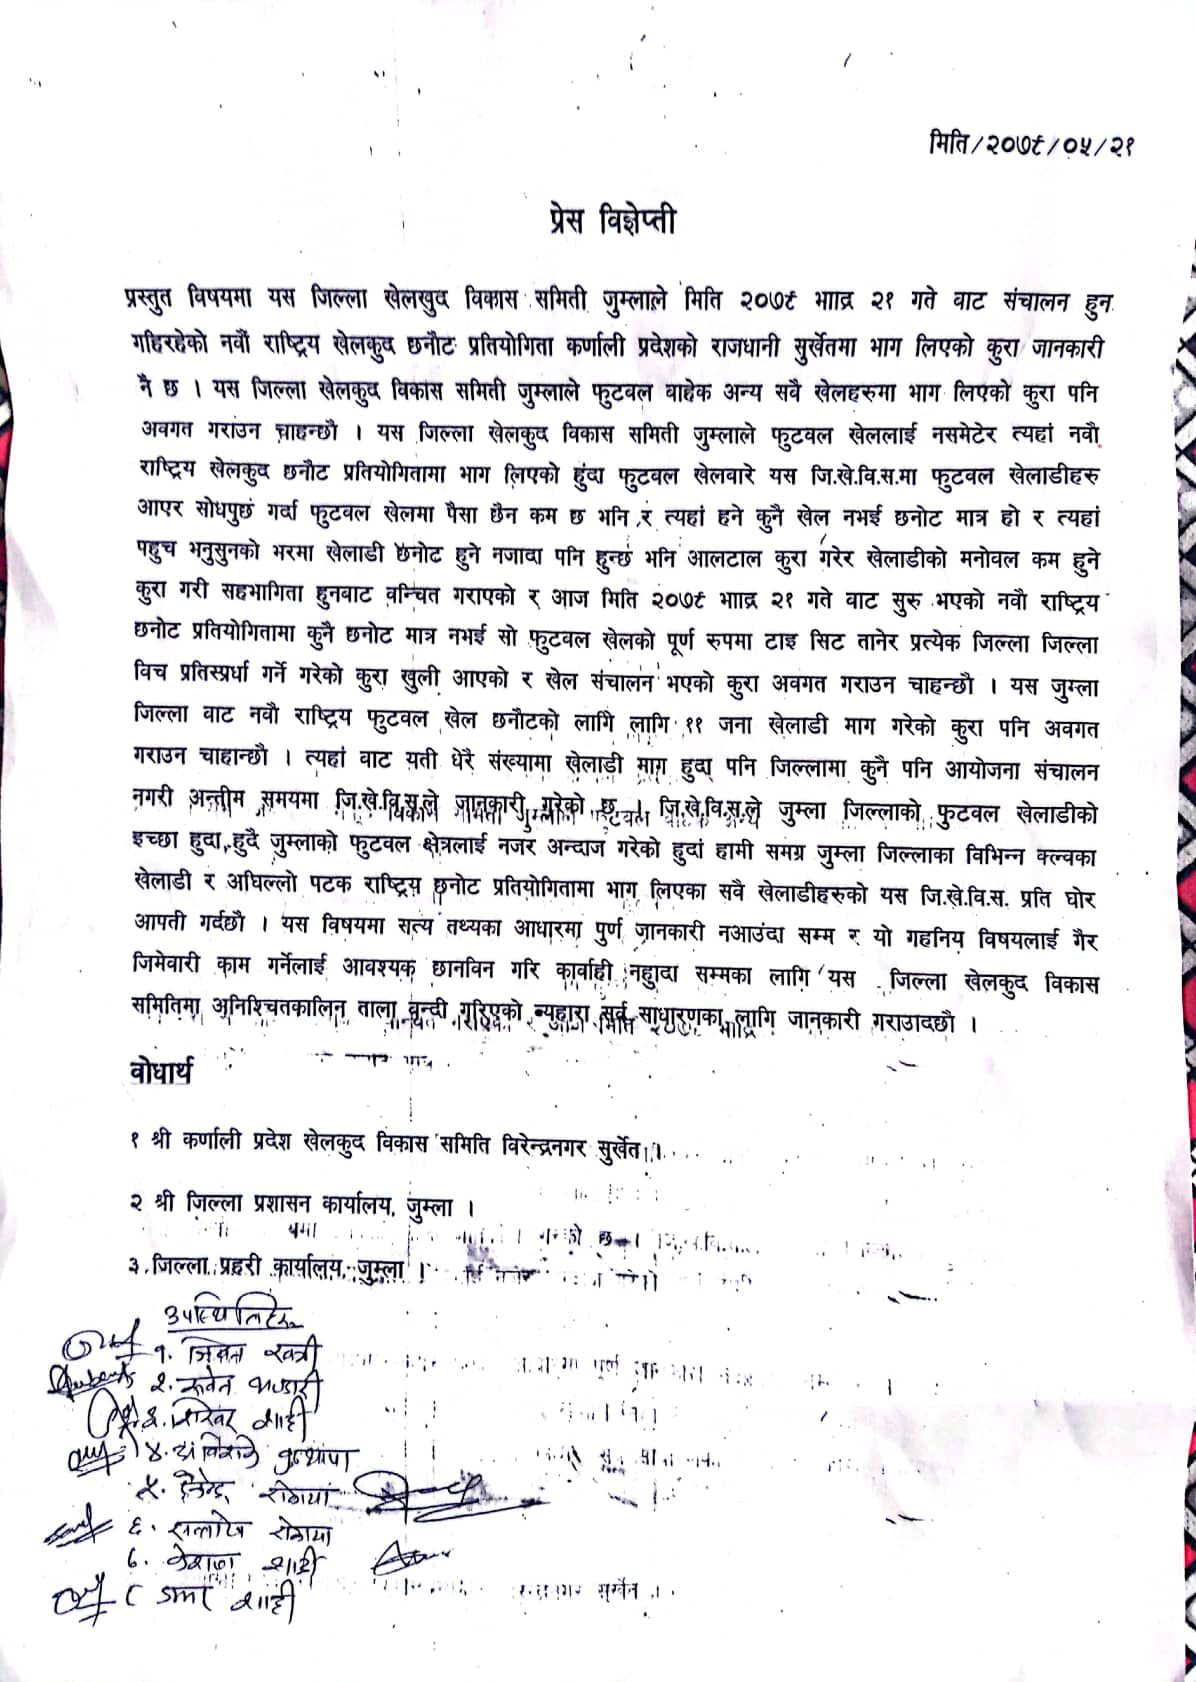 मिति/२०७९/०५/२१
प्रेस विज्ञेप्ती
प्रस्तुत विषयमा यस जिल्ला खेलखुद विकास समिती जुम्लाले मिति २०७९ भााद्र २१ गते वाट संचालन हुन
गहिरहेको नवौं राष्ट्रिय खेलकुद छनौट प्रतियोगिता कर्णाली प्रदेशको राजधानी सुर्खेतमा भाग लिएको कुरा जानकारी
नै छ । यस जिल्ला खेलकुद विकास समिती जुम्लाले फुटवल वाहेक अन्य सवै खेलहरुमा भाग लिएको कुरा पनि
अवगत गराउन चाहन्छौ । यस जिल्ला खेलकुद विकास समिती जुम्लाले फुटवल खेललाई नसमेटेर त्यहां नवौ
राष्ट्रिय खेलकुद छनौट प्रतियोगितामा भाग लिएको हुंदा फुटवल खेलवारे यस जि.खे.वि.स.मा फुटवल खेलाडीहरु
आएर सोधपुछ गर्दा फुटवल खेलमा पैसा छैन कम छ भनि र त्यहां हने कुनै खेल नभई छनोट मात्र हो र त्यहां
पहुच भनुसुनको भरमा खेलाडी छनोट हुने नजादा पनि हुन्छ भनि आलटाल कुरा गरेर खेलाडीको मनोवल कम हुने
कुरा गरी सहभागिता हुनबाट वन्चित गराएको र आज मिति २०७९ भााद्र २१ गते वाट सुरु भएको नवौ राष्ट्रिय
छनोट प्रतियोगितामा कुनै छनोट मात्र नभई सो फुटवल खेलको पूर्ण रुपमा टाइ सिट तानेर प्रत्येक जिल्ला जिल्ला
विच प्रतिस्पर्धा गर्ने गरेको कुरा खुली आएको र खेल संचालन भएको कुरा अवगत गराउन चाहन्छौ । यस जुम्ला
जिल्ला वाट नवौ राष्ट्रिय फुटवल खेल छनौटको लागि लागि ११ जना खेलाडी माग गरेको कुरा पनि अवगत
गराउन चाहान्छौ । त्यहां वाट यती धेरै संख्यामा खेलाडी माग हुदा पनि जिल्लामा कुनै पनि आयोजना संचालन
नगरी अन्तीम समयमा जि.खे.वि.स.ले जानकारी गरेको छ । जि.खे.वि.स.ले जुम्ला जिल्लाको फुटवल खेलाडीको
इच्छा हुदा हुदै जुम्लाको फुटवल क्षेत्रलाई नजर अन्दाज गरेको हुदां हामी समग्र जुम्ला जिल्लाका विभिन्न क्ल्वका
खेलाडी र अघिल्लो पटक राष्ट्रिय छनोट प्रतियोगितामा भाग लिएका सवै खेलाडीहरुको यस जि.खे.वि.स. प्रति घोर
आपती गर्दछौ । यस विषयमा सत्य तथ्यका आधारमा पुर्ण जानकारी नआउंदा सम्म र यो गहनिय विषयलाई गैर
जिमेवारी काम गर्नेलाई आवश्यक छानविन गरि कार्वाही नहुादा सम्मका लागि यस जिल्ला खेलकुद विकास
समितिमा अनिश्चितकालिन ताला वन्दी गरिएको व्यहारा सर्व साधारणका लागि जानकारी गराउादछौ ।
वोधार्थ
१ श्री कर्णाली प्रदेश खेलकुद विकास समिति विरेन्द्रनगर सुर्खेत ।
२ श्री जिल्ला प्रशासन कार्यालय, जुम्ला ।
३ जिल्ला प्रहरी कार्यालय, जुम्ला ।
१. जिवन खत्री
२. भण्डारी
३. शाही
४. बुढथापा
५. रोकाया
६. रोकाया
७. शाही
८ शाही